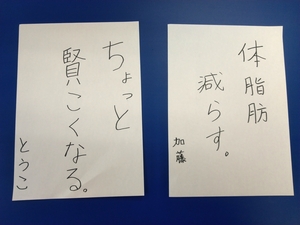 体脂肪
減らす。
加藤
ちょっと
賢こくなる。
とうこ